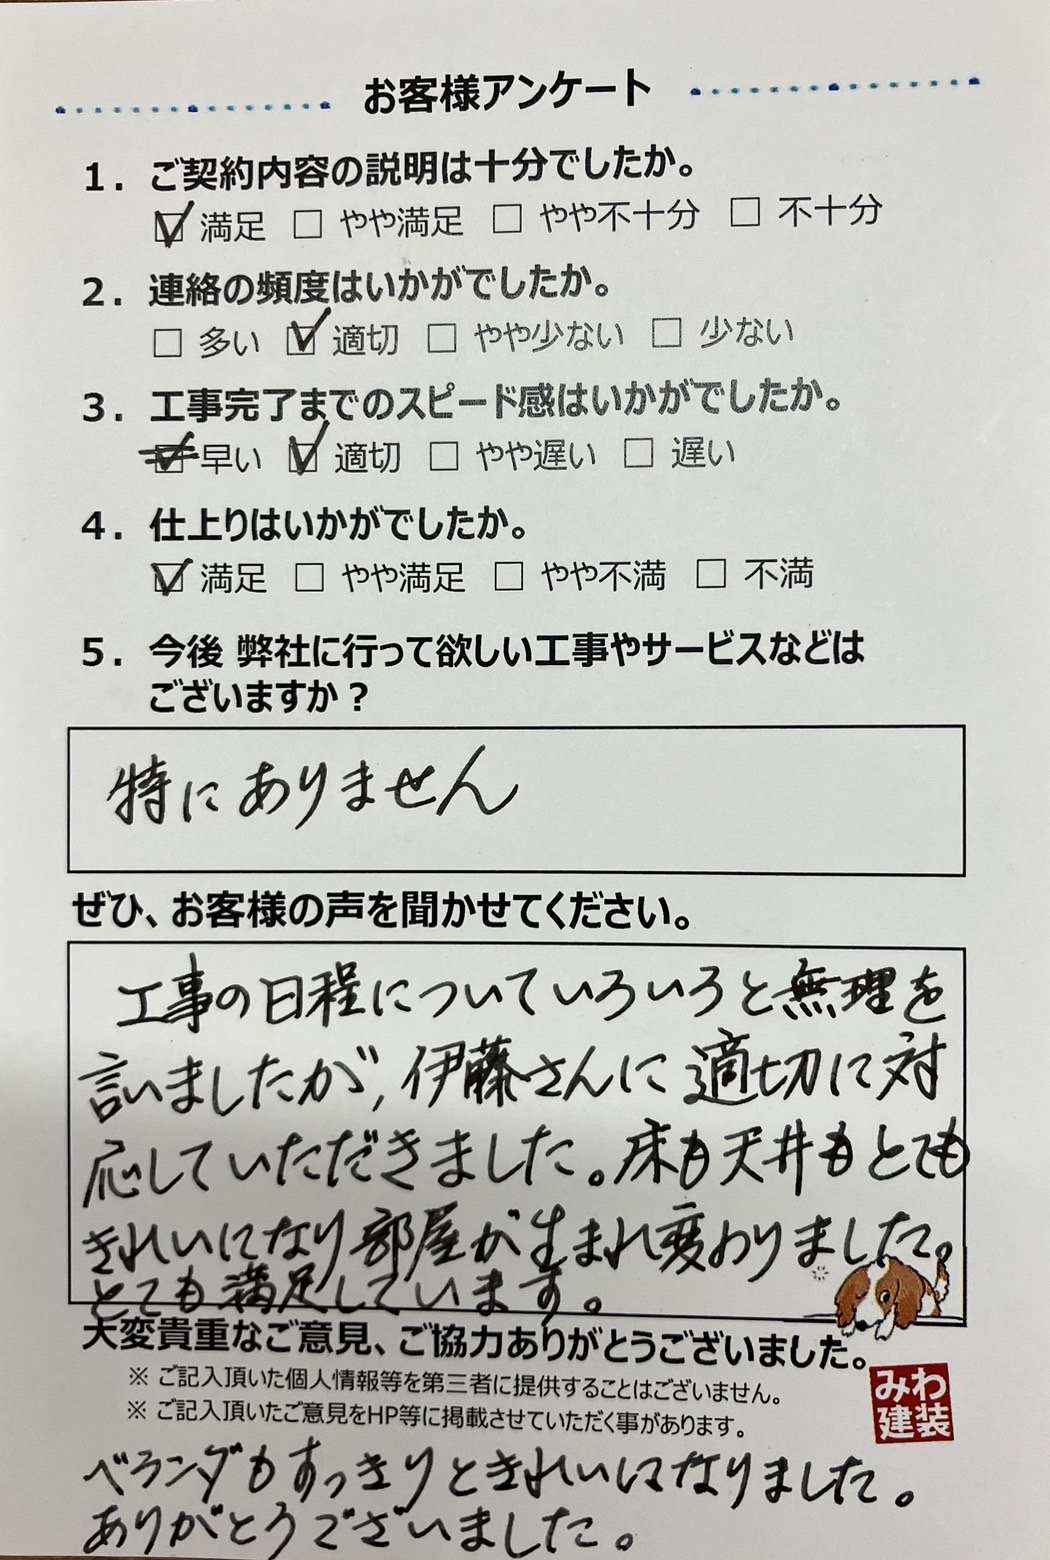 お客様アンケート
1. ご契約内容の説明は十分でしたか。
☑ 満足 □ やや満足 □ やや不十分 □ 不十分
2. 連絡の頻度はいかがでしたか。
□ 多い ☑ 適切 □ やや少ない □ 少ない
3. 工事完了までのスピード感はいかがでしたか。
☑ 早い ☑ 適切 □ やや遅い □ 遅い
4. 仕上りはいかがでしたか。
☑ 満足 □ やや満足 □ やや不満 □ 不満
5. 今後 弊社に行って欲しい工事やサービスなどは
ございますか？
特にありません
ぜひ、お客様の声を聞かせてください。
工事の日程についていろいろと無理を
言いましたが、伊藤さんに適切に対
応していただきました。床も天井もとても
きれいになり部屋が生まれ変わりました。
とても満足しています。
大変貴重なご意見、ご協力ありがとうございました。
※ ご記入頂いた個人情報等を第三者に提供することはございません。
※ ご記入頂いたご意見をHP等に掲載させていただく事があります。
みわ
建装
ベランダもすっきりときれいになりました。
ありがとうございました。